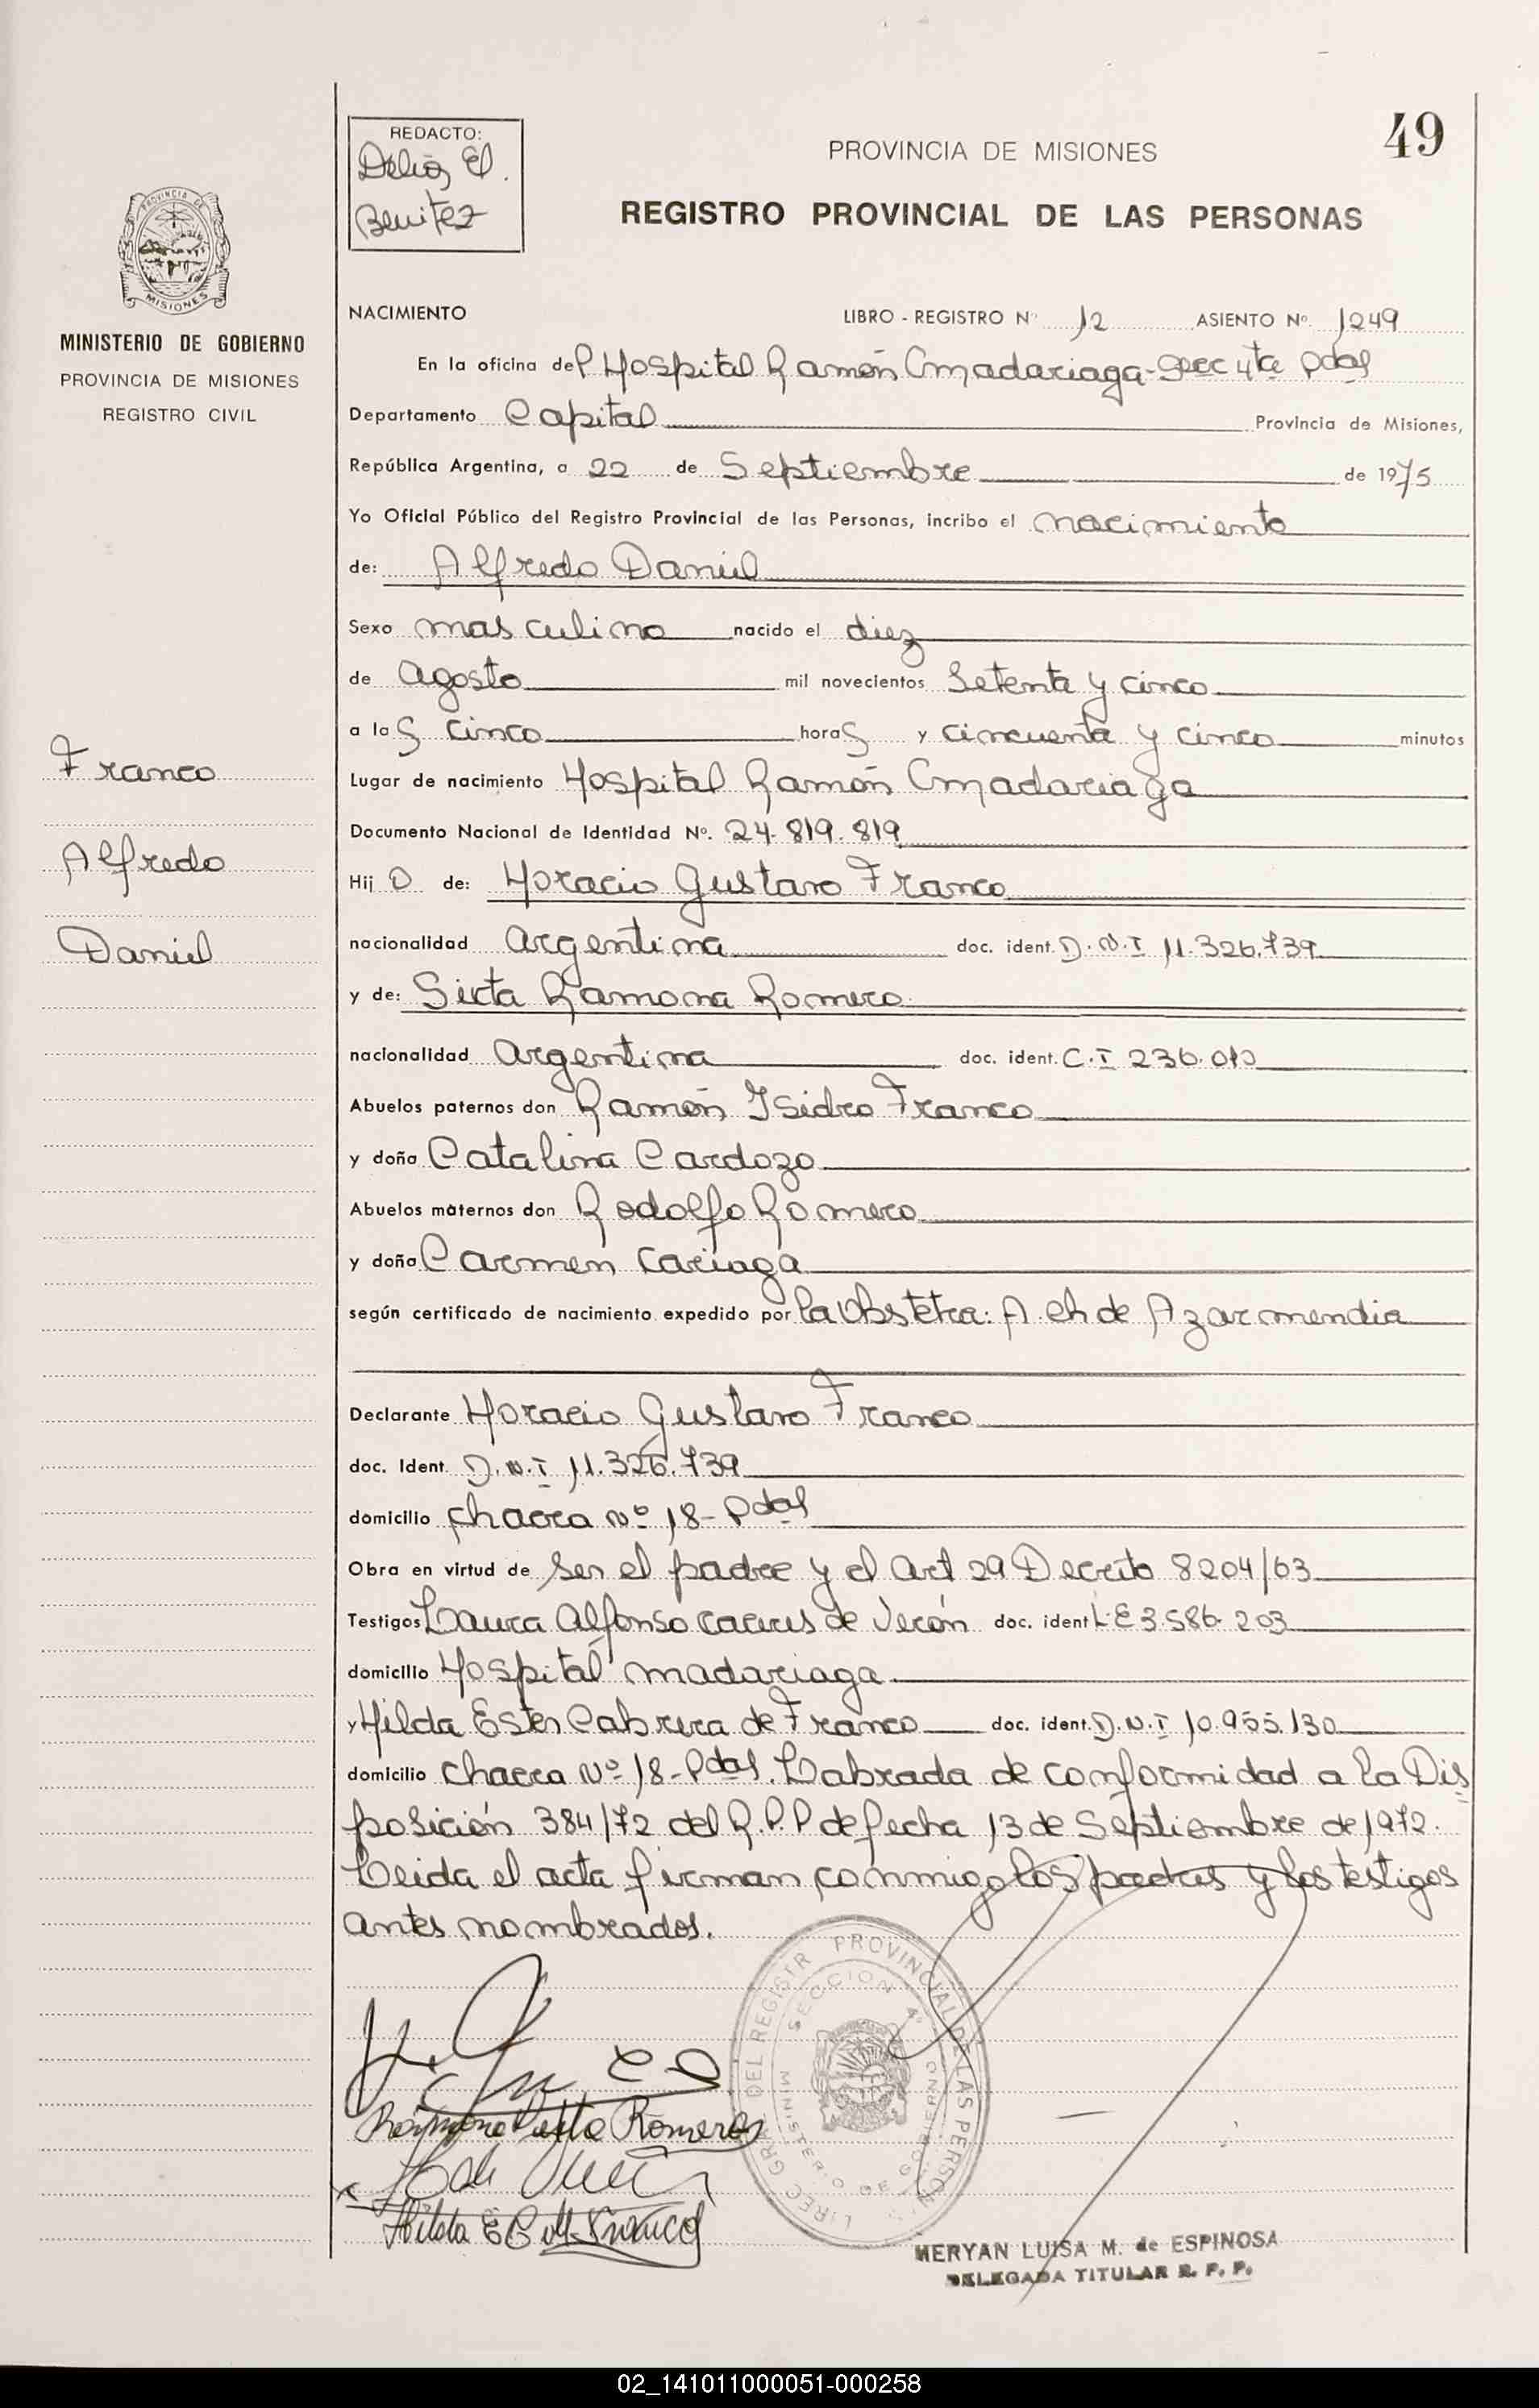 49
REDACTO:
Delia El.
Benitez
PROVINCIA DE MISIONES
REGISTRO PROVINCIAL DE LAS PERSONAS
PROVINCIA DE
MISIONES
MINISTERIO DE GOBIERNO
PROVINCIA DE MISIONES
REGISTRO CIVIL
NACIMIENTO LIBRO - REGISTRO Nº 12 ASIENTO Nº 1249
En la oficina del Hospital Ramón Madariaga - Secc 4ta Pdas
Departamento Capital Provincia de Misiones,
República Argentina, a 22 de Septiembre de 1975
Yo Oficial Público del Registro Provincial de las Personas, incribo el nacimiento
de: Alfredo Daniel
Sexo masculino nacido el diez
de agosto mil novecientos Setenta y cinco
a las cinco horas y cincuenta y cinco minutos
Lugar de nacimiento Hospital Ramón Madariaga
Documento Nacional de Identidad Nº. 24.819.819
Hijo de: Horacio Gustavo Franco
nacionalidad argentina doc. ident. D.N.I 11.326.739
y de: Sixta Ramona Romero
nacionalidad argentina doc. ident. C.I 236.010
Abuelos paternos don Ramón Isidro Franco
y doña Catalina Cardozo
Abuelos maternos don Rodolfo Romero
y doña Carmen Cariaga
según certificado de nacimiento expedido por la Obstetra: A. ch de Azarmendia
Declarante Horacio Gustavo Franco
doc. Ident. D.N.I 11.326.739
domicilio chacra Nº 18 - Pdas
Obra en virtud de ser el padre y el Art 29 Decreto 8204/63
Testigos Laura Alfonso caceres de Verón doc. ident L.E 3.586.203
domicilio Hospital madariaga
y Hilda Ester Cabrera de Franco doc. ident. D.N.I 10.955.130
domicilio chacra Nº 18 - Pdas. Labrada de conformidad a la Dis
posición 384/72 del R.P.P de fecha 13 de Septiembre de 1972.
Leida el acta firman conmigo los padres y los testigos
antes nombrados.
Franco
Alfredo
Daniel
Ramona Sixta Romero
Hilda E C de Franco
DIREC GRAL DEL REGISTR PROVINCIAL DE LAS PERSONAS
SECCION 4ª
MINISTERIO DE GOBIERNO
MERYAN LUISA M. de ESPINOSA
DELEGADA TITULAR R. P. P.
02_141011000051-000258